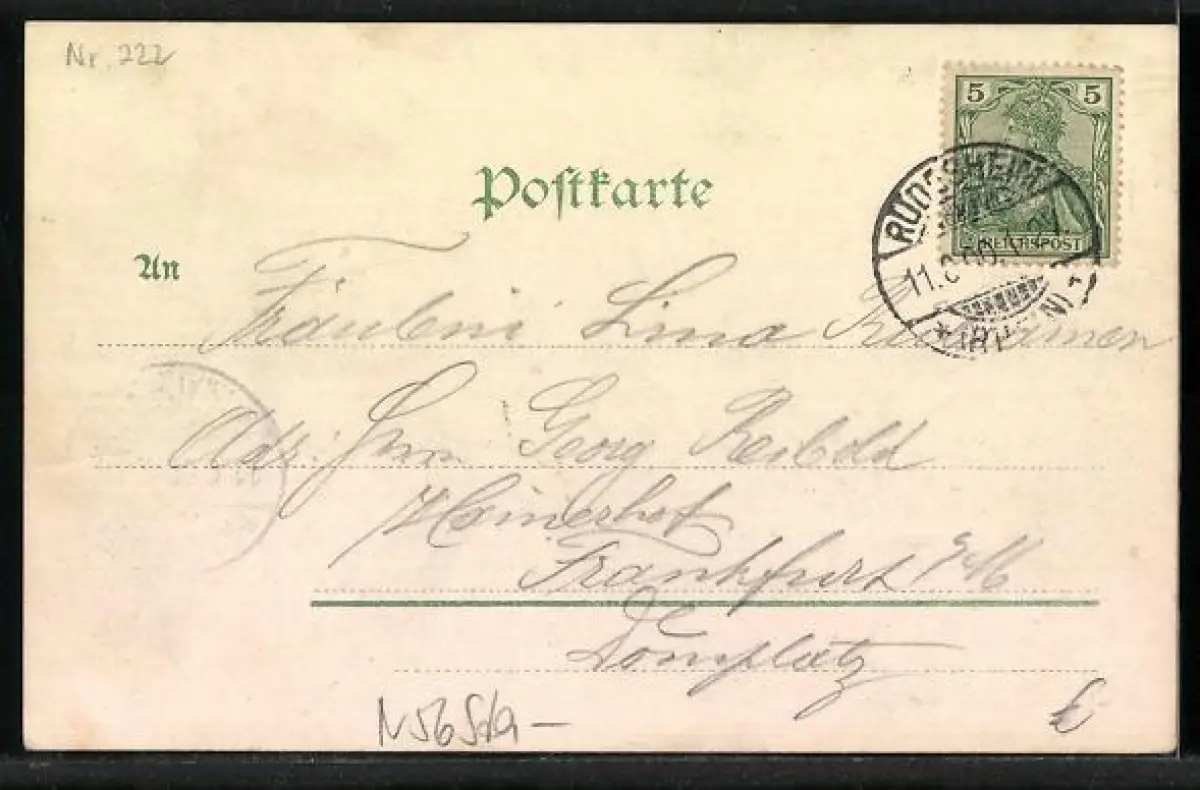 Nr. 222
5 5
REICHSPOST
RÜDESHEIM
11.
* (RHEIN)
Postkarte
An
Fräulein Lina
Adr: Herrn Georg Reibold
Heinerhof
Frankfurt a/M
Domplatz